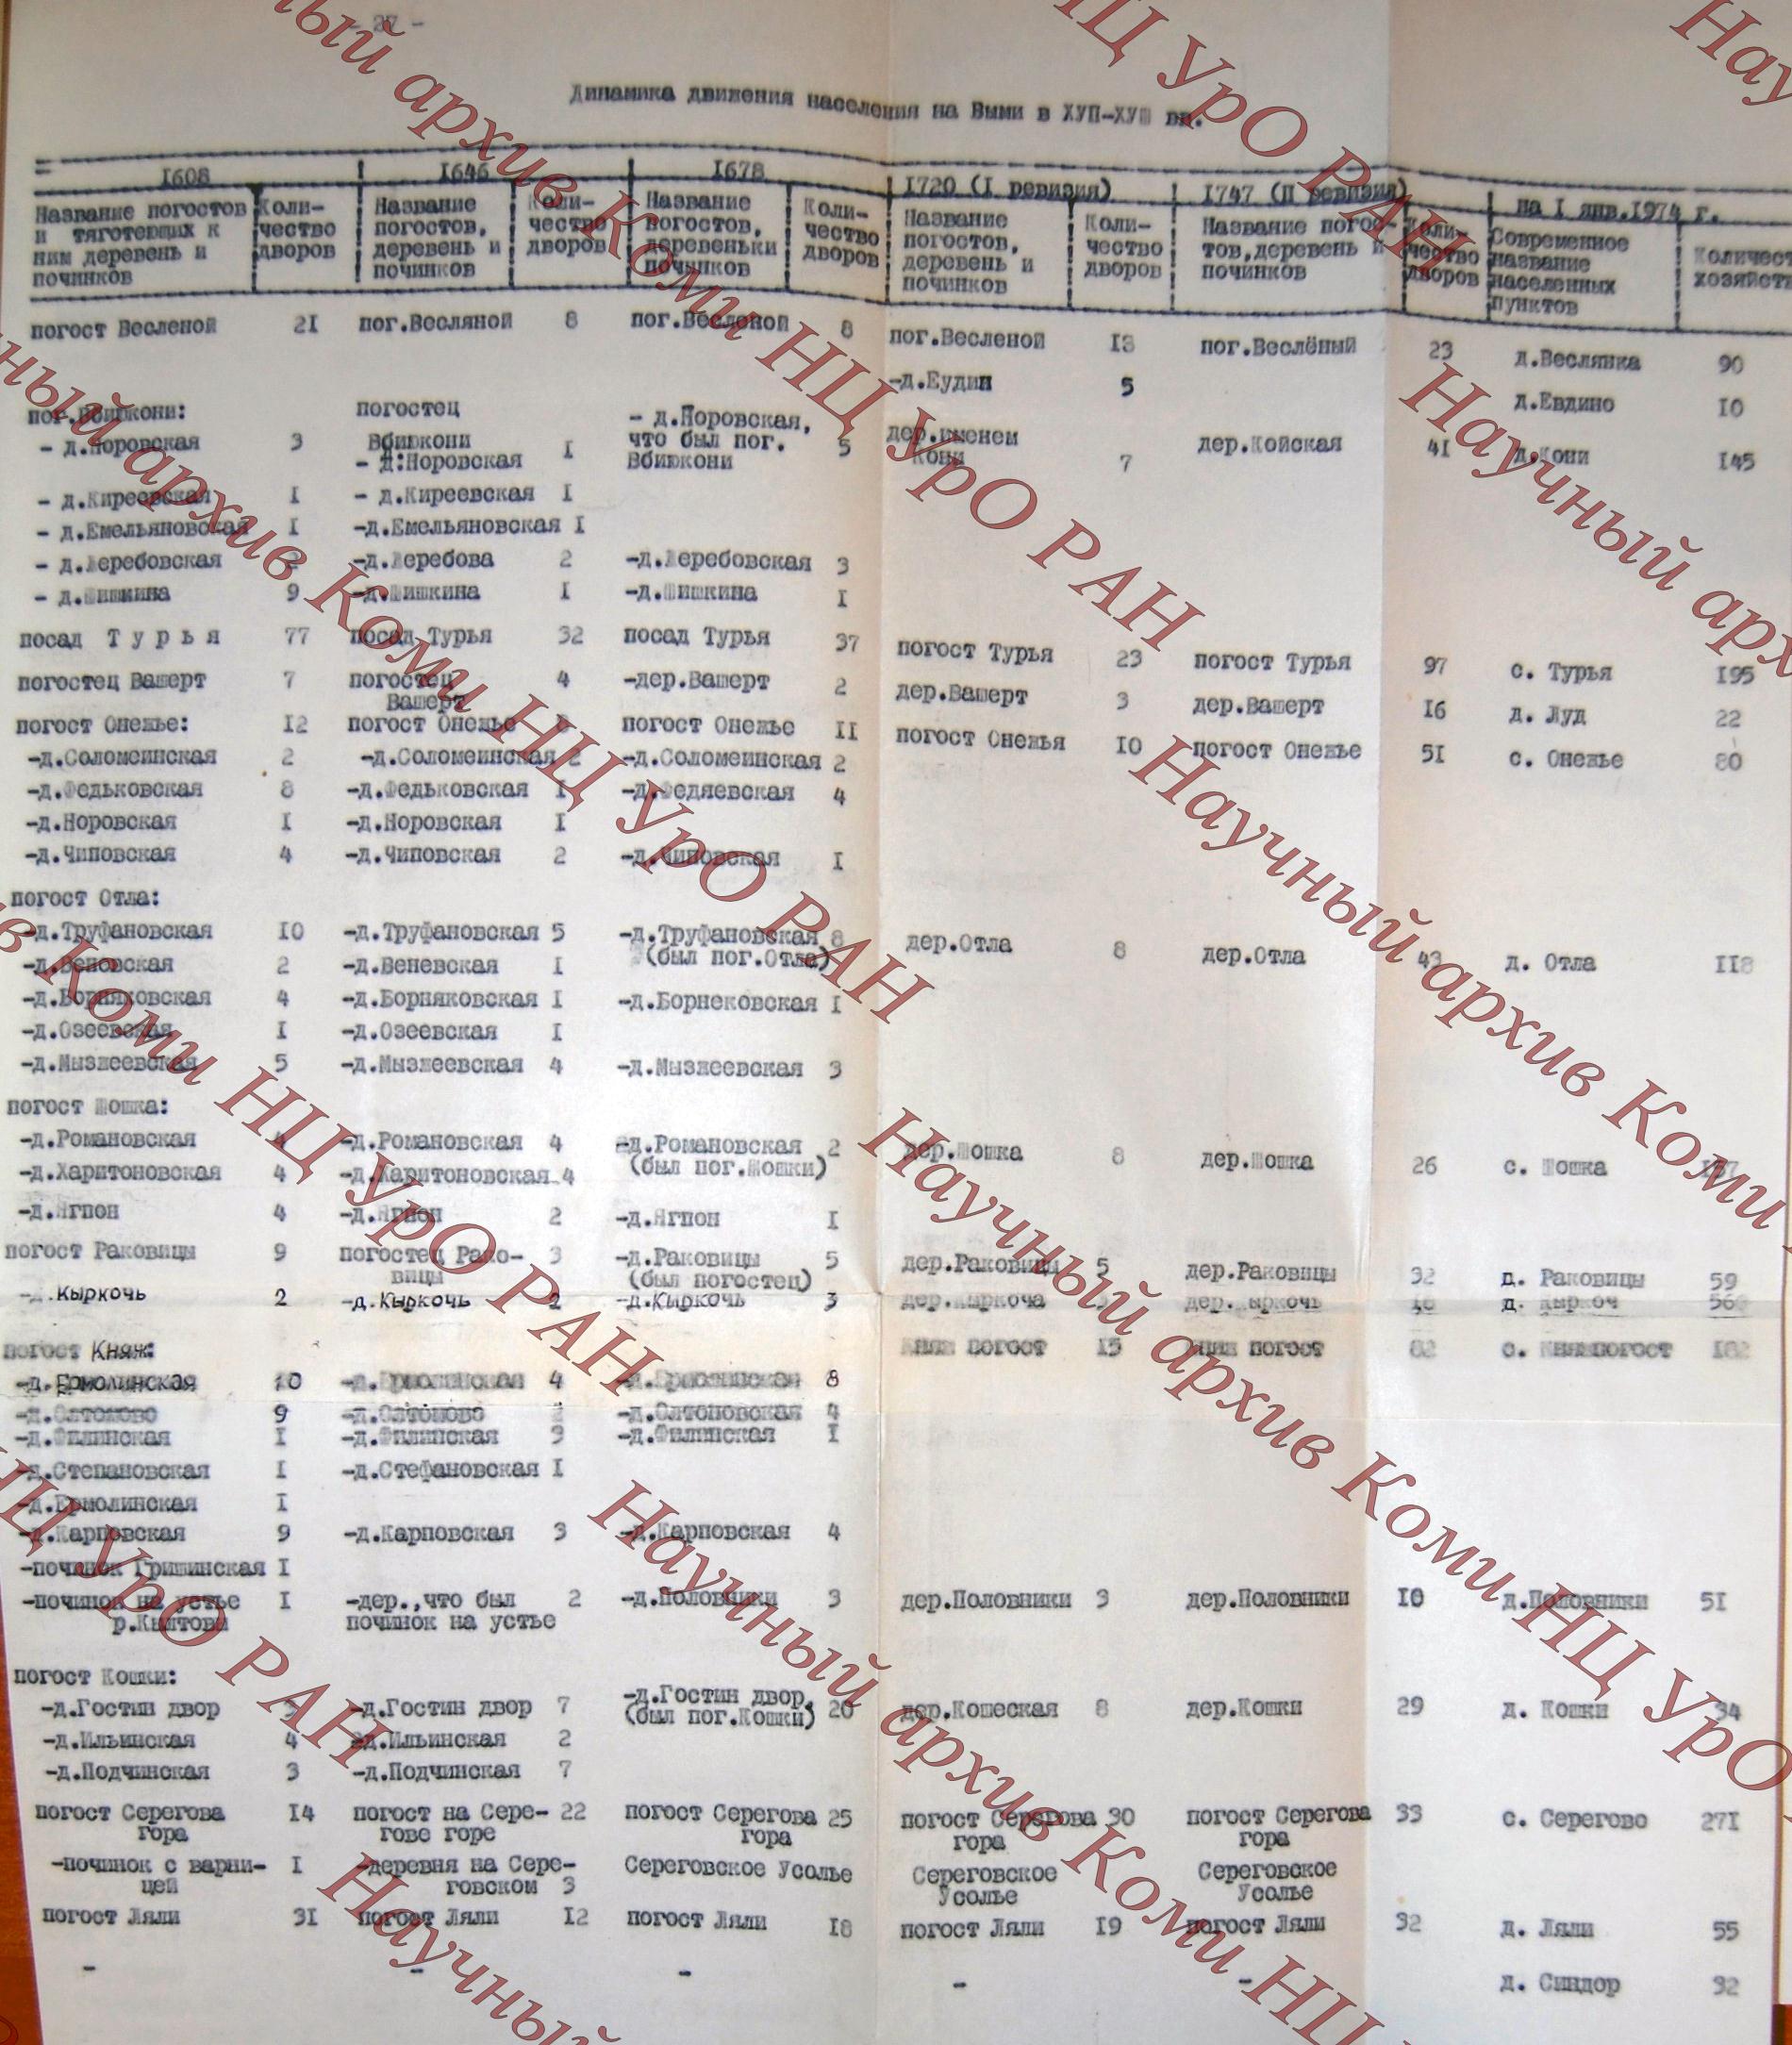 - 27 -
Динамика движения населения на Выми в ХУП-ХУШ вв.
1608 1646 1678 1720 (I ревизия) 1747 (П ревизия) на I янв.1974 г.
Название погостов и тяготеющих к ним деревень и починков
Коли-чество дворов
Название погостов, деревень и починков
Коли-чество дворов
Название погостов, деревеньки починков
Коли-чество дворов
Название погостов, деревень и починков
Коли-чество дворов
Название погос-тов,деревень и починков
Коли-чество дворов
Современное название населенных пунктов
Количест
хозяйств
погост Весленой 2I пог.Весляной 8 пог.Весленой 8 пог.Весленой I3 пог.Веслёный 23 д.Веслянка 90
-д.Еудин 5 д.Евдино I0
пог.Вбиюкони: погостец
- д.Норовская 3 Вбиюкони
- д:Норовская I
- д.Норовская, что был пог. Вбиюкони 5
дер.именем Кони 7 дер.Койская 4I д.Кони I45
- д.Киреевская I - д.Киреевская I
- д.Емельяновская I -д.Емельяновская I
- д.Жеребовская -д.Жеребова 2 -д.Жеребовская 3
- д.Шишкина 9 -д.Шишкина I -д.Шишкина I
посад Т у р ь я 77 посад Турья 32 посад Турья 37 погост Турья 23 погост Турья 97 с. Турья I95
погостец Вашерт 7 погостец Вашерт 4 -дер.Вашерт 2 дер.Вашерт 3 дер.Вашерт I6 д. Луд 22
погост Онежье: I2 погост Онежье погост Онежье II погост Онежья I0 погост Онежье 5I с. Онежье 80
-д.Соломеинская 2 -д.Соломеинская 2 -д.Соломеинская 2
-д.Федьковская 8 -д.Федьковская I -д.Федяевская 4
-д.Норовская I -д.Норовская I
-д.Чиповская 4 -д.Чиповская 2 -д.Чиповская I
погост Отла:
-д.Труфановская I0 -д.Труфановская 5 -д.Труфановская 8 дер.Отла 8 дер.Отла 43 д. Отла II8
(был пог.Отла)
-д.Веновская 2 -д.Веневская I
-д.Борняковская 4 -д.Борняковская I -д.Борнековская I
-д.Озеевская I -д.Озеевская I
-д.Мызжеевская 5 -д.Мызжеевская 4 -д.Мызжеевская 3
погост Шошка:
-д.Романовская -д.Романовская 4 -д.Романовская 2 дер.Шошка 8 дер.Шошка 26 с. Шошка
(был пог.Шошки)
-д.Харитоновская 4 -д.Харитоновская 4
-д.Ягпон 4 -д.Ягпон 2 -д.Ягпон I
погост Раковицы 9 погостец Рако-вицы 3 -д.Раковицы 5 дер.Раковицы 5 дер.Раковицы 32 д. Раковицы 59
(был погостец)
-д.Кыркочь 2 -д.Кыркочь 2 -д.Кыркочь 3 дер.Кыркоча дер.Кыркочь д. Кыркоч 56
погост Княж: Княж погост I5 Княж погост 82 с. Княжпогост I82
-д.Ермолинская I0 -д.Ермолинская 4 -д.Ермолинская 8
-д.Олтомово 9 -д.Олтомово -д.Олтоновская 4
-д.Филинская I -д.Филинская 3 -д.Филинская I
-д.Степановская I -д.Стефановская I
-д.Ермолинская I
-д.Карповская 9 -д.Карповская 3 -д.Карповская 4
-починок Гришинская I
-починок на устье р.Кылтова I -дер.,что был починок на устье 2 -д.Половники 3 дер.Половники 3 дер.Половники I0 д.Половники 5I
погост Кошки:
-д.Гостин двор -д.Гостин двор 7 -д.Гостин двор, 20 дер.Кошеская 8 дер.Кошки 29 д. Кошки 34
(был пог.Кошки)
-д.Ильинская 4 -д.Ильинская 2
-д.Подчинская 3 -д.Подчинская 7
погост Серегова гора I4 погост на Сере-гове горе 22 погост Серегова гора 25 погост Серегова гора 30 погост Серегова гора 33 с. Серегово 27I
-починок с варни-цей I -деревня на Сере-говском 3 Сереговское Усолье Сереговское Усолье Сереговское Усолье
погост Ляли 3I погост Ляли I2 погост Ляли I8 погост Ляли I9 погост Ляли 32 д. Ляли 55
- - - - - д. Синдор 32
Научный архив Коми НЦ УрО РАН